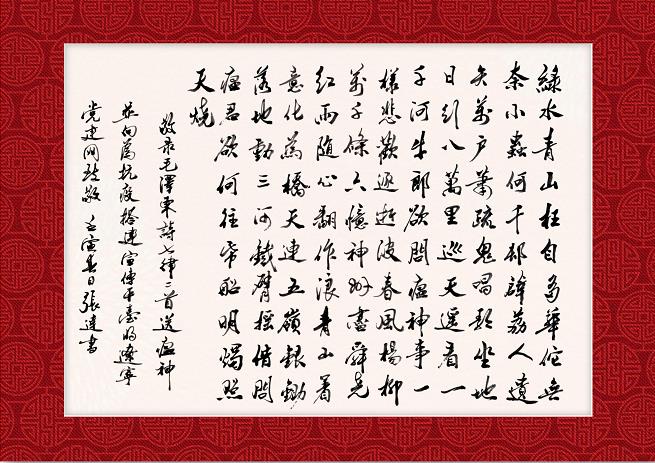 綠水青山枉自多華佗無
奈小蟲何千邨薜荔人遺
矢萬户蕭疏鬼唱歌坐地
日行八萬里巡天遥看一
千河牛郎欲問瘟神事一
樣悲歡逐逝波春風楊柳
萬千條六億神州盡舜堯
紅雨隨心翻作浪青山著
意化為橋天連五嶺銀鋤
落地動三河鐵臂摇借問
瘟君欲何往帋船明燭照
天燒
敬录毛澤東詩七律二首送瘟神
並向為抗疫搭建宣傳平臺的遼寧
党建网致敬 壬寅春日張書